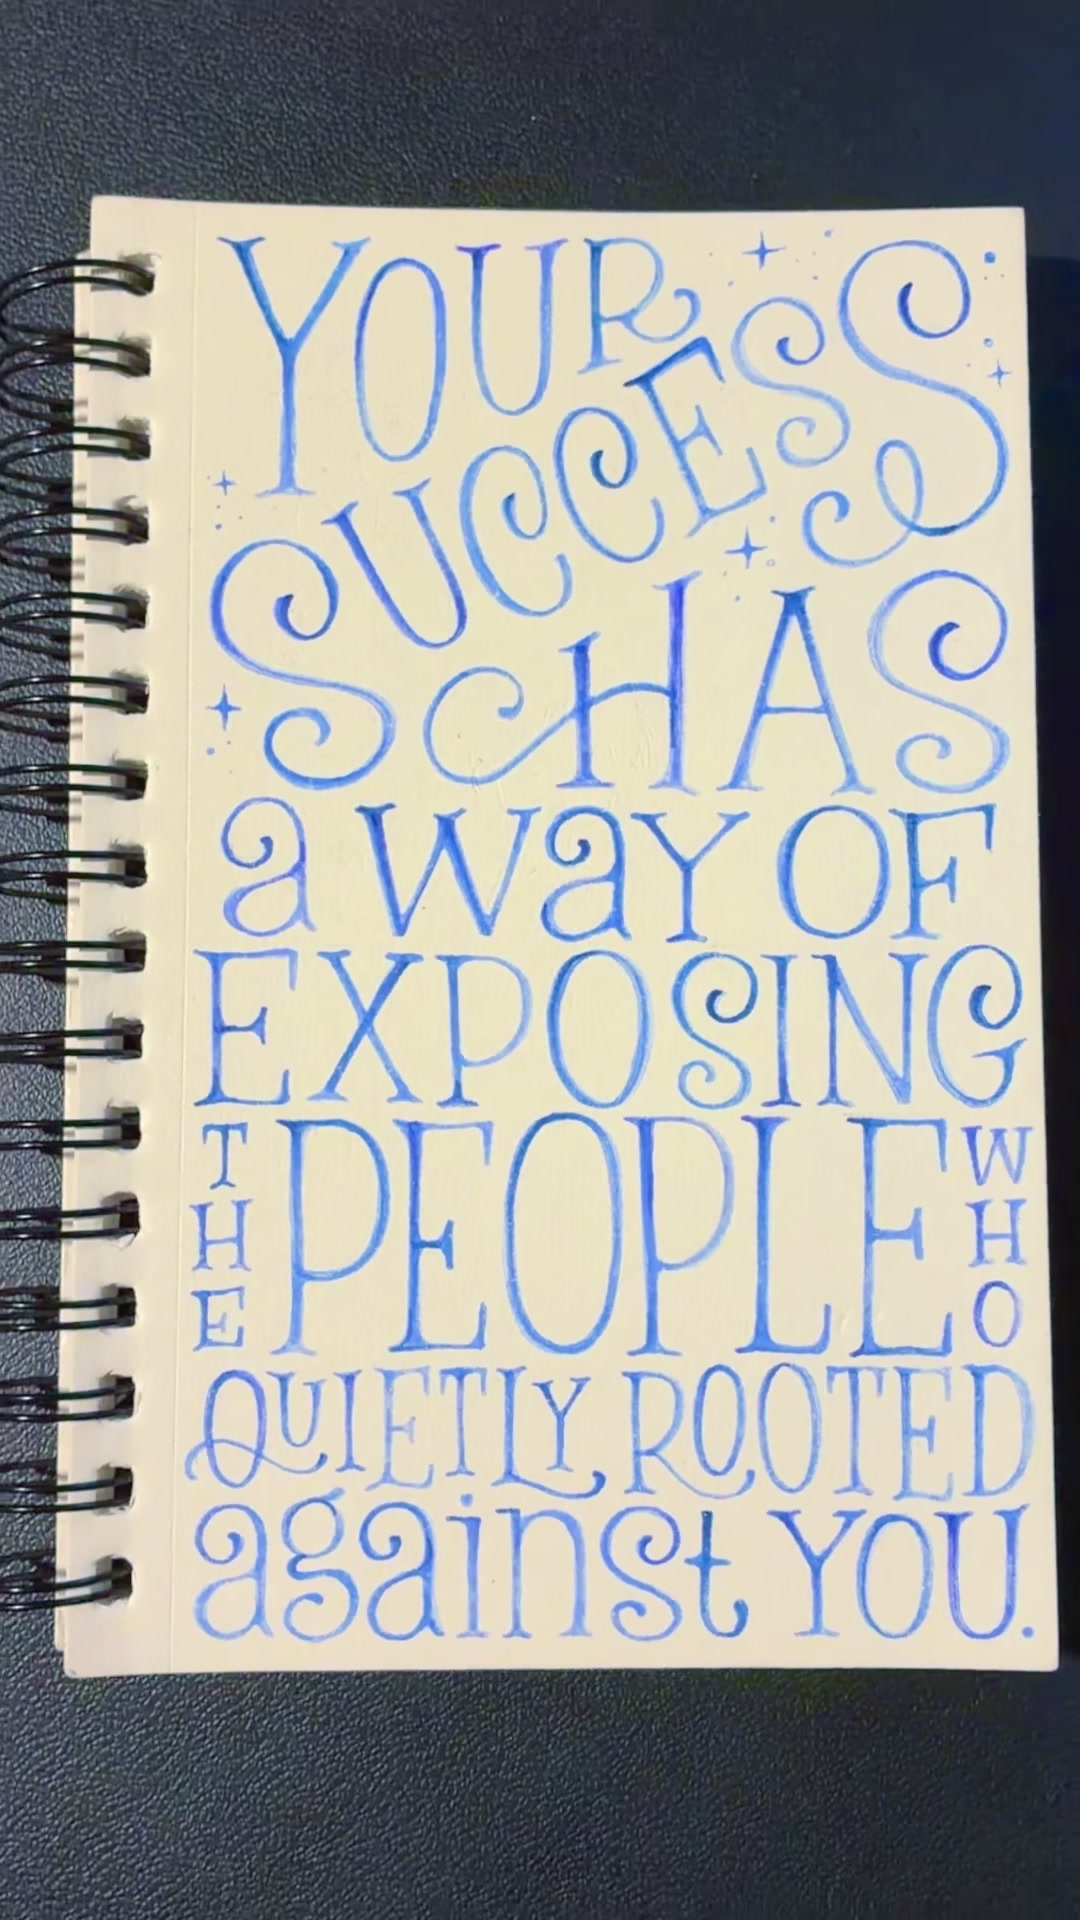 YOUR
SUCCESS
HAS
a Way OF
EXPOSING
THE PEOPLE WHO
QUIETLY ROOTED
against YOU.